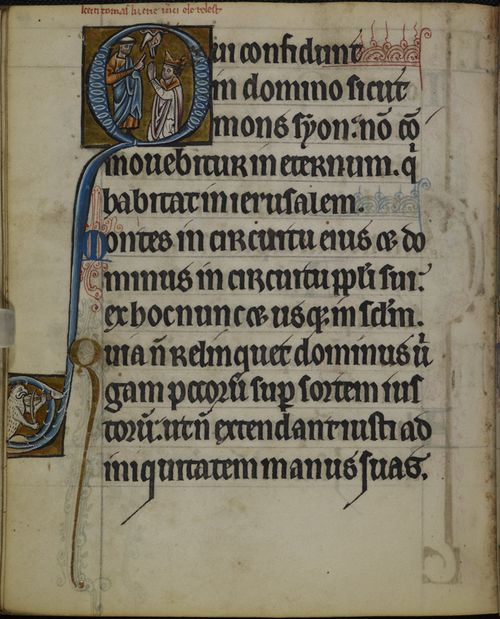 Qui confidunt
in domino sicut
mons syon: nō cō
mouebitur in eternum. q̄
habitat in ierusalem.
Montes in circuitu eius et do
minus in circuitu ppl̄i sui:
ex hoc nunc et usq; in sclm̄.
Quia ñ relinquet dominus ūi
gam pccorū sup sortem ius
torū: ut ñ extendant iusti ad
iniquitatem manus suas.